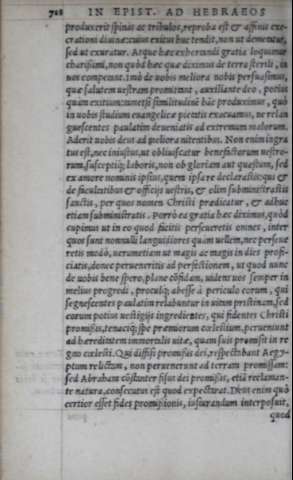 728 IN EPIST. AD HEBRAEOS
produxerit spinas ac tribulos, reproba est & affinis exe-
crationi diuinæ: cuius exitus huc tendit, non ut demetatur,
sed ut exuratur. Atque hæc exhortandi gratia loquimur
charissimi, non quòd hæc quæ diximus de terra sterili, in
uos competant. imò de uobis meliora nobis persuasimus,
quæ salutem uestram promittant, auxiliante deo, potius
quàm exitium: tametsi similitudinē hāc produximus, quò
in uobis studium euangelicæ pietatis exacuamus, ne relan
guescentes paulatim deueniatis ad extremum malorum.
Aderit uobis deus ad meliora nitentibus. Non enim ingra
tus est, nec iniustus, ut obliuiscatur benefactorum uestro-
rum, susceptiq; laboris, non ob gloriam aut quæstum, sed
ex amore nominis ipsius, quem ipsa re declarastis: quæ &
de facultatibus & officijs uestris, & olim subministrastis
sanctis, per quos nomen Christi prædicatur, & adhuc
etiam subministratis. Porrò ea gratia hæc diximus, quòd
cupimus ut in eo quod fecistis perseueretis omnes, inter
quos sunt nonnulli languidiores quàm uellem, nec perseue
retis modò, uerumetiam ut magis ac magis in dies profi-
ciatis, donec perueneritis ad perfectionem, ut quod nunc
de uobis bene spero, plane cōfidam, uidens uos semper in
melius progredi, proculq; abesse à periculo eorum, qui
segnescentes paulatim relabuntur in uitam pristinam, sed
eorum potius uestigijs ingredientes, qui fidentes Christi
promissis, tenaciq; spe præmiorum cœlestium, perueniunt
ad hæreditatem immortalis uitæ, quam suis promisit in re
gno cœlesti. Qui diffisi promissis dei, respectabant Aegy-
ptum relictam, non peruenerunt ad terram promissam:
sed Abraham cōstanter fisus dei promissis, etiā reclaman-
te natura, consecutus est quod expectarat. Deus enim quò
certior esset fides promissionis, iusiurandum interposuit,
quod